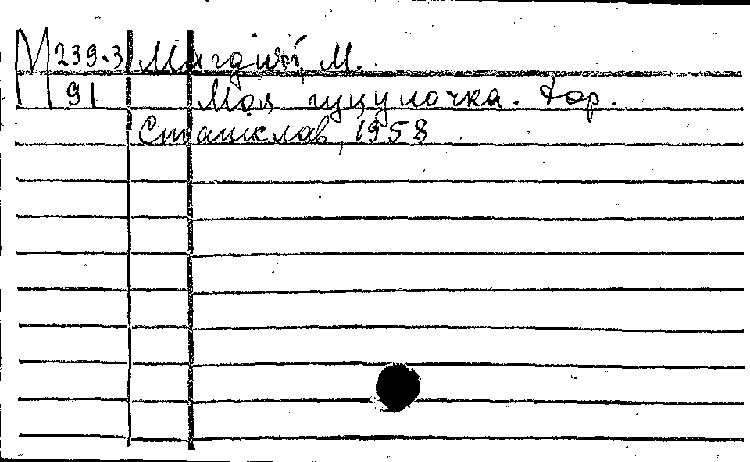 М 239.3 Магдій, М.
91 Моя гуцулочка. Хор.
Станіслав, 1958